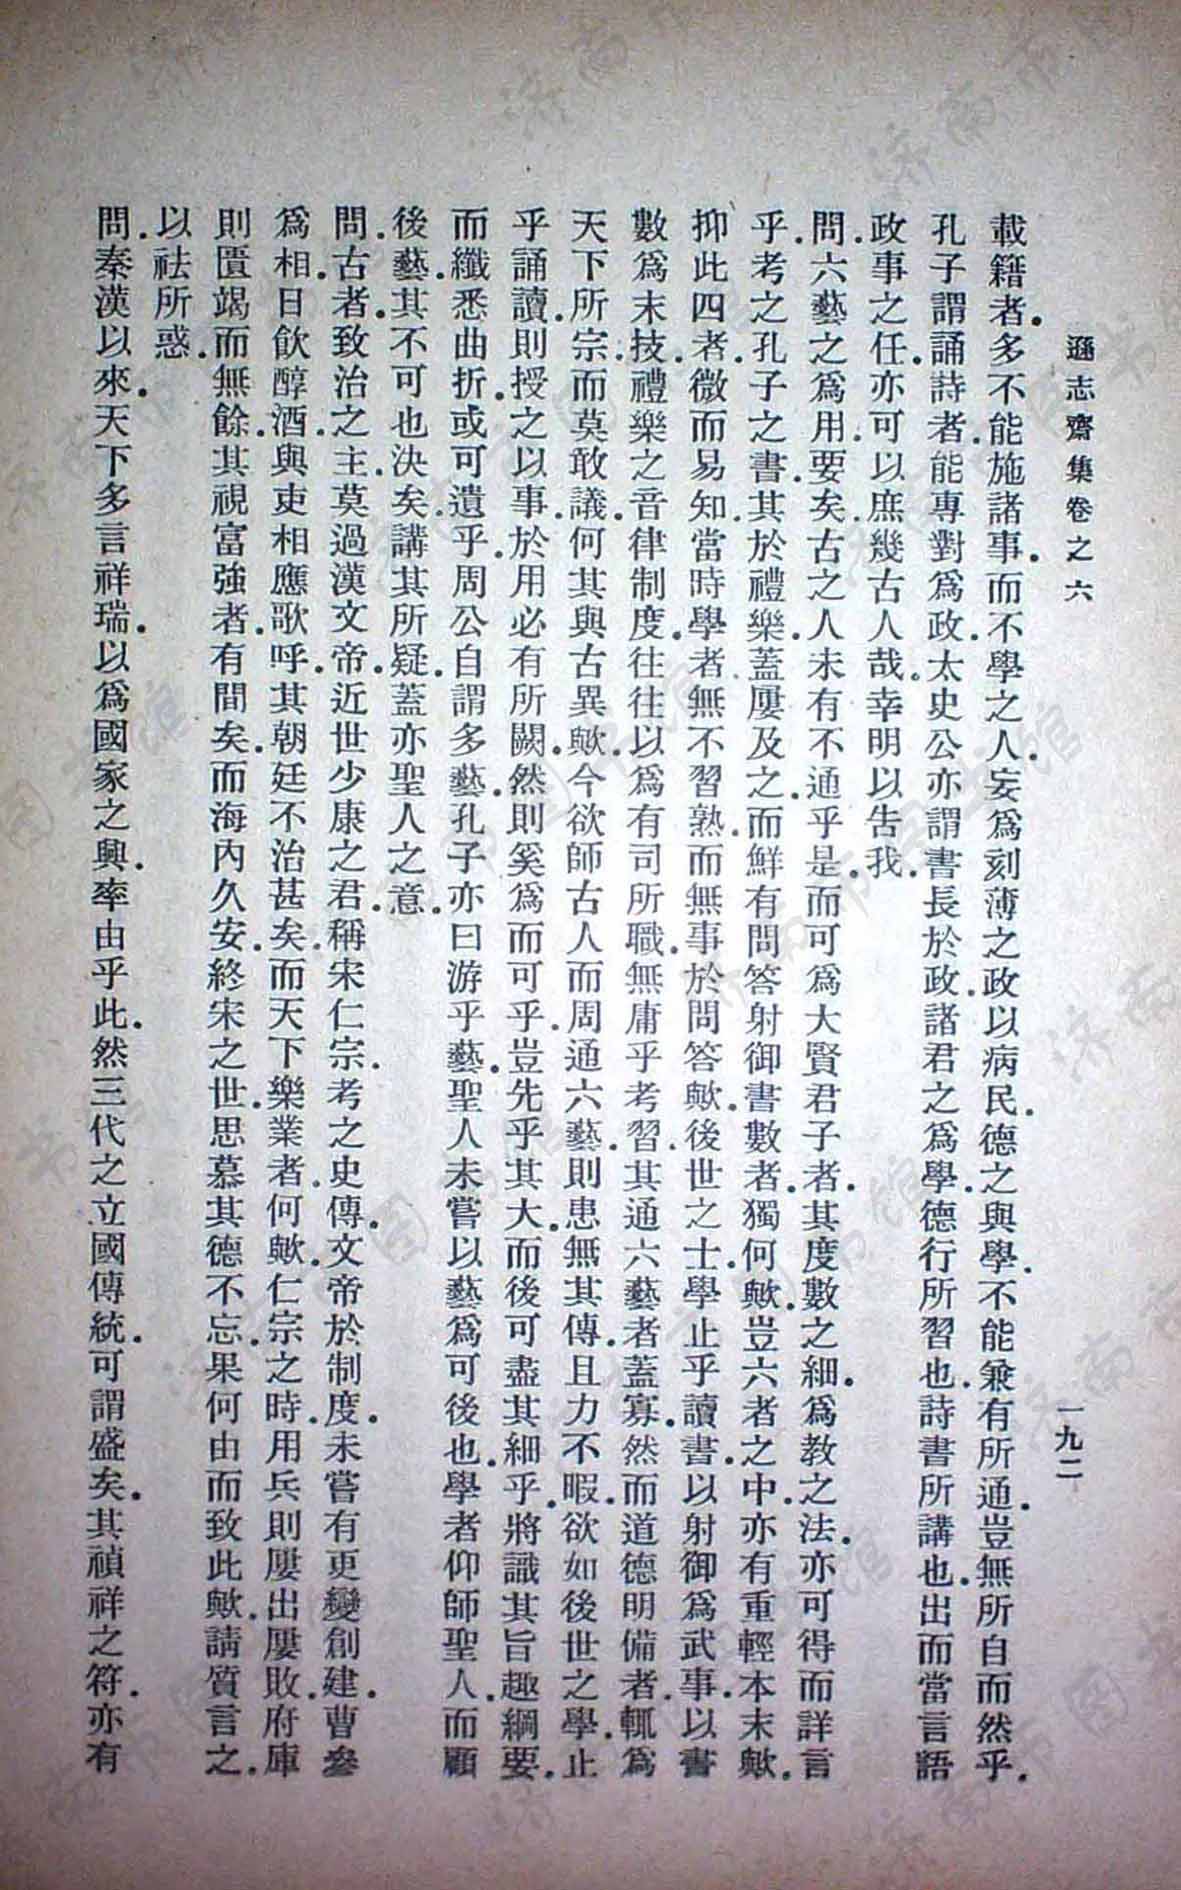 遜志齋集卷之六
一九二
載籍者.多不能施諸事.而不學之人.妄爲刻薄之政以病民.德之與學.不能兼有所通.豈無所自而然乎.
孔子謂誦詩者.能專對爲政.太史公亦謂書長於政.諸君之爲學.德行所習也.詩書所講也.出而當言語
政事之任.亦可以庶幾古人哉.幸明以告我.
問.六藝之爲用.要矣.古之人.未有不通乎是.而可爲大賢君子者.其度數之細.爲教之法.亦可得而詳言
乎.考之孔子之書.其於禮樂.蓋屢及之.而鮮有問答射御書數者.獨何歟.豈六者之中.亦有重輕本末歟.
抑此四者.微而易知.當時學者無不習熟.而無事於問答歟.後世之士.學止乎讀書.以射御爲武事.以書
數爲末技.禮樂之音律制度.往往以爲有司所職.無庸乎考習.其通六藝者蓋寡.然而道德明備者.輒爲
天下所宗.而莫敢議.何其與古異歟.今欲師古人而周通六藝.則患無其傳.且力不暇.欲如後世之學.止
乎誦讀.則授之以事.於用必有所闕.然則奚爲而可乎.豈先乎其大.而後可盡其細乎.將識其旨趣綱要.
而纖悉曲折.或可遺乎.周公自謂多藝.孔子亦曰游乎藝.聖人未嘗以藝爲可後也.學者仰師聖人.而顧
後藝.其不可也決矣.講其所疑.蓋亦聖人之意.
問.古者.致治之主.莫過漢文帝.近世少康之君.稱宋仁宗.考之史傳.文帝於制度.未嘗有更變創建.曹參
爲相.日飲醇酒.與吏相應歌呼.其朝廷不治甚矣.而天下樂業者.何歟.仁宗之時.用兵則屢出屢敗.府庫
則匱竭而無餘.其視富強者.有間矣.而海內久安.終宋之世.思慕其德不忘.果何由而致此歟.請質言之.
以祛所惑.
問.秦漢以來.天下多言祥瑞.以爲國家之興.率由乎此.然三代之立國傳統.可謂盛矣.其禎祥之符.亦有